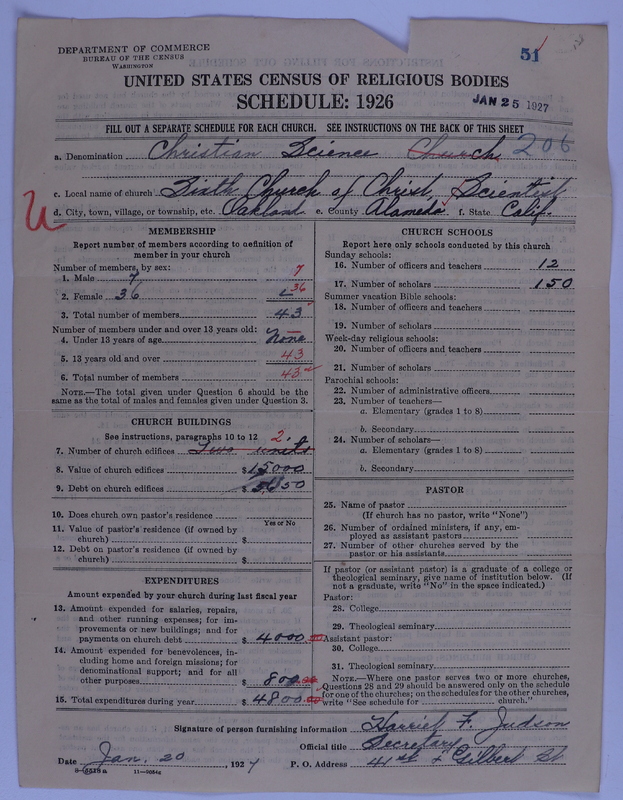 DEPARTMENT OF COMMERCE
BUREAU OF THE CENSUS
WASHINGTON
51
UNITED STATES CENSUS OF RELIGIOUS BODIES
SCHEDULE: 1926
JAN 25 1927
FILL OUT A SEPARATE SCHEDULE FOR EACH CHURCH. SEE INSTRUCTIONS ON THE BACK OF THIS SHEET
a. Denomination Christian Science Church 206
c. Local name of church Sixth Church of Christ, Scientist
d. City, town, village, or township, etc. Oakland e. County Alameda f. State Calif.
U
MEMBERSHIP
Report number of members according to definition of
member in your church
Number of members, by sex:
1. Male 7 7
2. Female 36 36
3. Total number of members 43
Number of members under and over 13 years old:
4. Under 13 years of age none
5. 13 years old and over 43
6. Total number of members 43
NOTE.—The total given under Question 6 should be the
same as the total of males and females given under Question 3.
CHURCH BUILDINGS
See instructions, paragraphs 10 to 12 2
7. Number of church edifices Two units
8. Value of church edifices $ 15000
9. Debt on church edifices $ 5650
10. Does church own pastor's residence
Yes or No
11. Value of pastor's residence (if owned by
church) $
12. Debt on pastor's residence (if owned by
church) $
EXPENDITURES
Amount expended by your church during last fiscal year
13. Amount expended for salaries, repairs,
and other running expenses; for im-
provements or new buildings; and for
payments on church debt $ 4000.00
14. Amount expended for benevolences, in-
cluding home and foreign missions; for
denominational support; and for all
other purposes $ 800.00
15. Total expenditures during year $ 4800.00
CHURCH SCHOOLS
Report here only schools conducted by this church
Sunday schools:
16. Number of officers and teachers 12
17. Number of scholars 150
Summer vacation Bible schools:
18. Number of officers and teachers
19. Number of scholars
Week-day religious schools:
20. Number of officers and teachers
21. Number of scholars
Parochial schools:
22. Number of administrative officers
23. Number of teachers—
a. Elementary (grades 1 to 8)
b. Secondary
24. Number of scholars—
a. Elementary (grades 1 to 8)
b. Secondary
PASTOR
25. Name of pastor
(If church has no pastor, write "None")
26. Number of ordained ministers, if any, em-
ployed as assistant pastors
27. Number of other churches served by the
pastor or his assistants
If pastor (or assistant pastor) is a graduate of a college or
theological seminary, give name of institution below. (If
not a graduate, write "No" in the space indicated.)
Pastor:
28. College
29. Theological seminary
Assistant pastor:
30. College
31. Theological seminary
NOTE.—Where one pastor serves two or more churches,
Questions 28 and 29 should be answered only on the schedule
for one of the churches; on the schedules for the other churches,
write "See schedule for church."
Signature of person furnishing information Harriet F. Judson
Official title Secretary
Date Jan. 20, 1927 P. O. Address 41st & Gilbert St
8-5518a 11-9054a